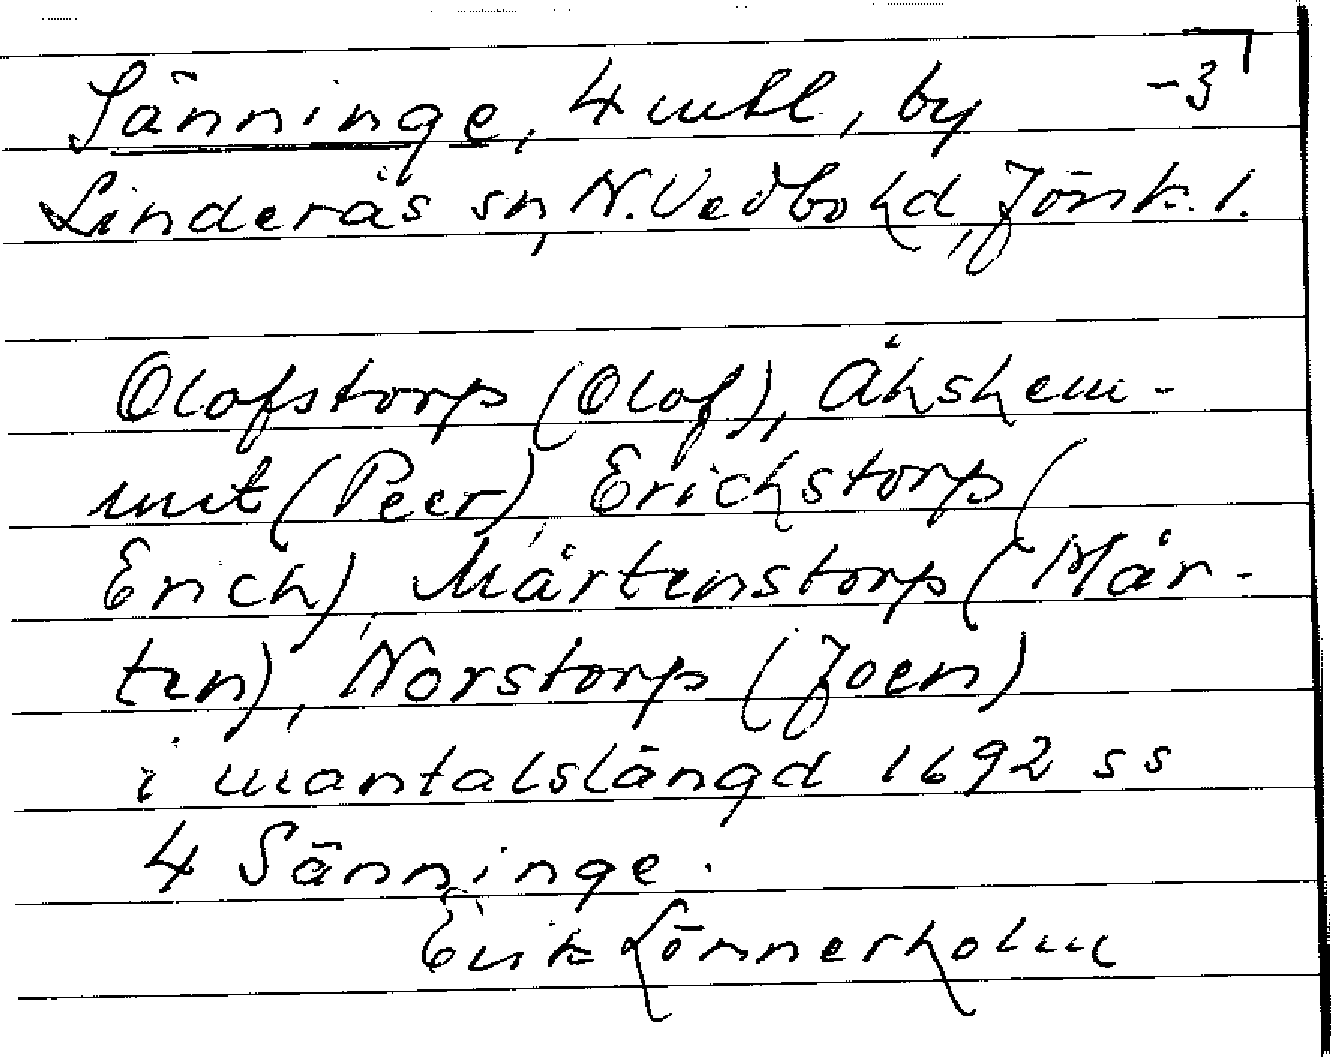 Sänninge, 4 mtl, by -3
Linderås sn, N. Vedbo hd, Jönk. l.
Olofstorp (Olof), Åhshem-
met (Peer), Erichstorp (
Erich), Mårtenstorp (Mår-
ten), Norstorp (Joen)
i mantalslängd 1692 ss
4 Sänninge.
Erik Lönnerholm